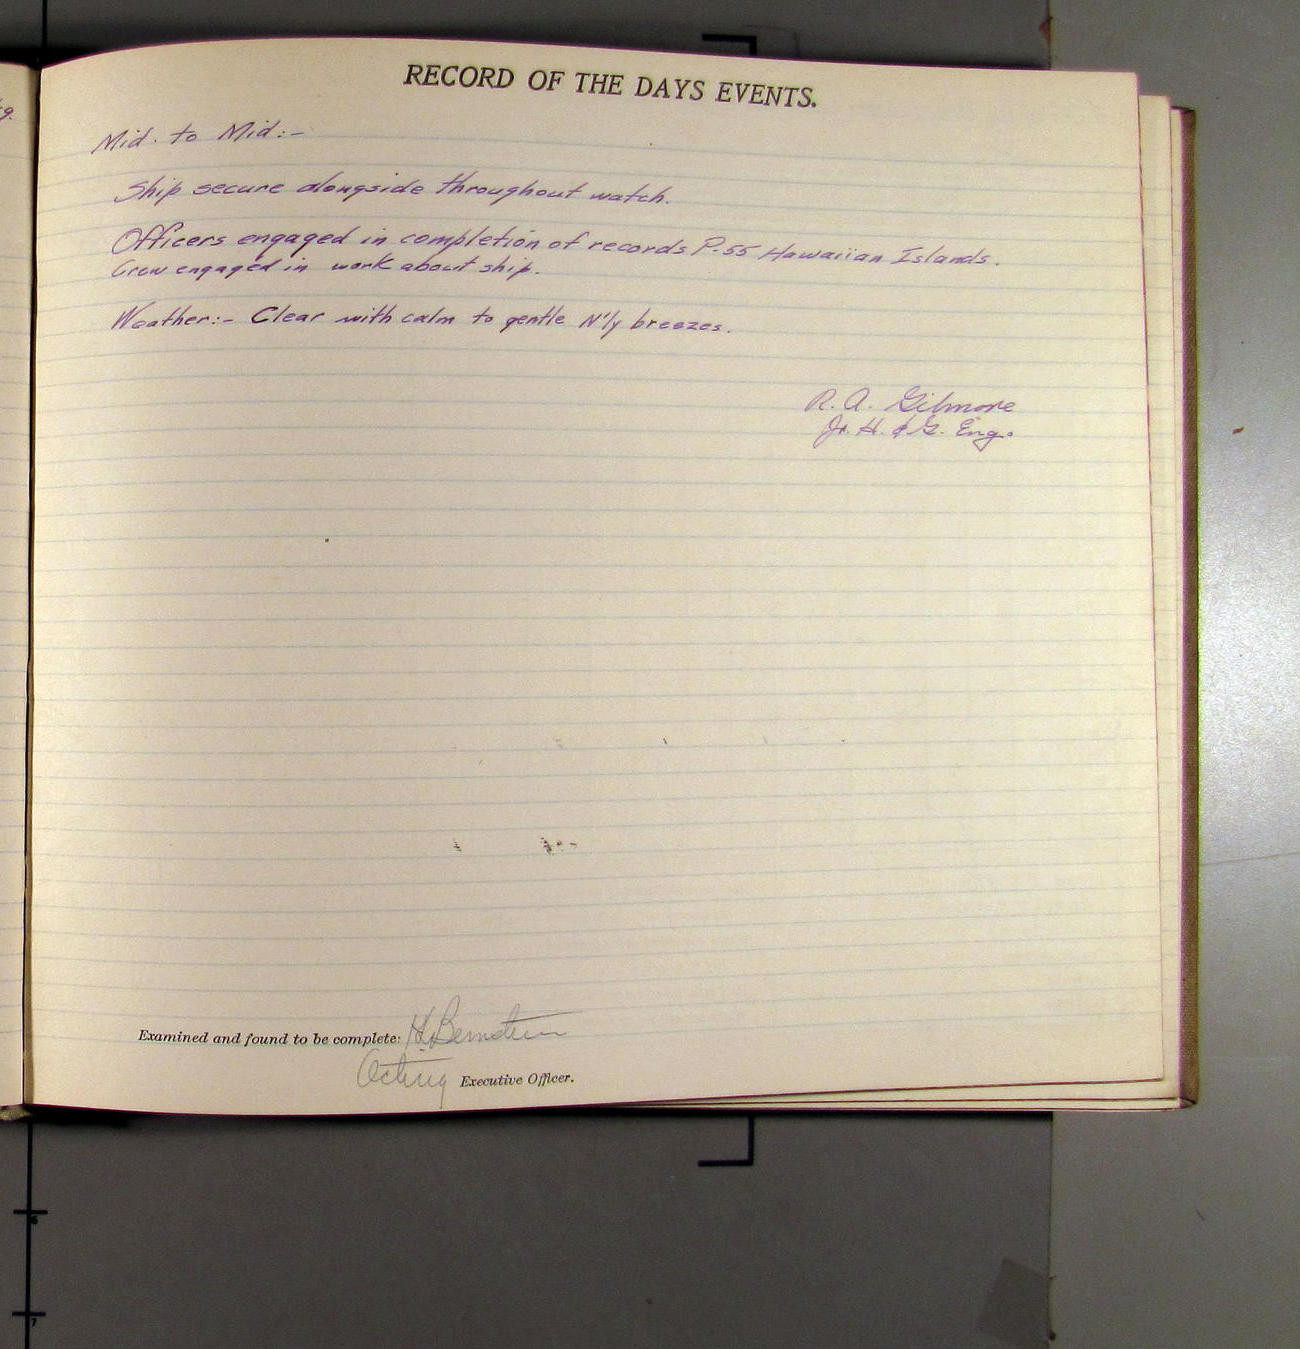 RECORD OF THE DAYS EVENTS.
Mid. to Mid:-
Ship secure alongside throughout watch.
Officers engaged in completion of records P-55 Hawaiian Islands.
Crew engaged in work about ship.
Weather:- Clear with calm to gentle N'ly breezes.
R. A. Gilmore
Jr. H. & G. Eng.
Examined and found to be complete: H. Bernstein
Acting Executive Officer.
6
7